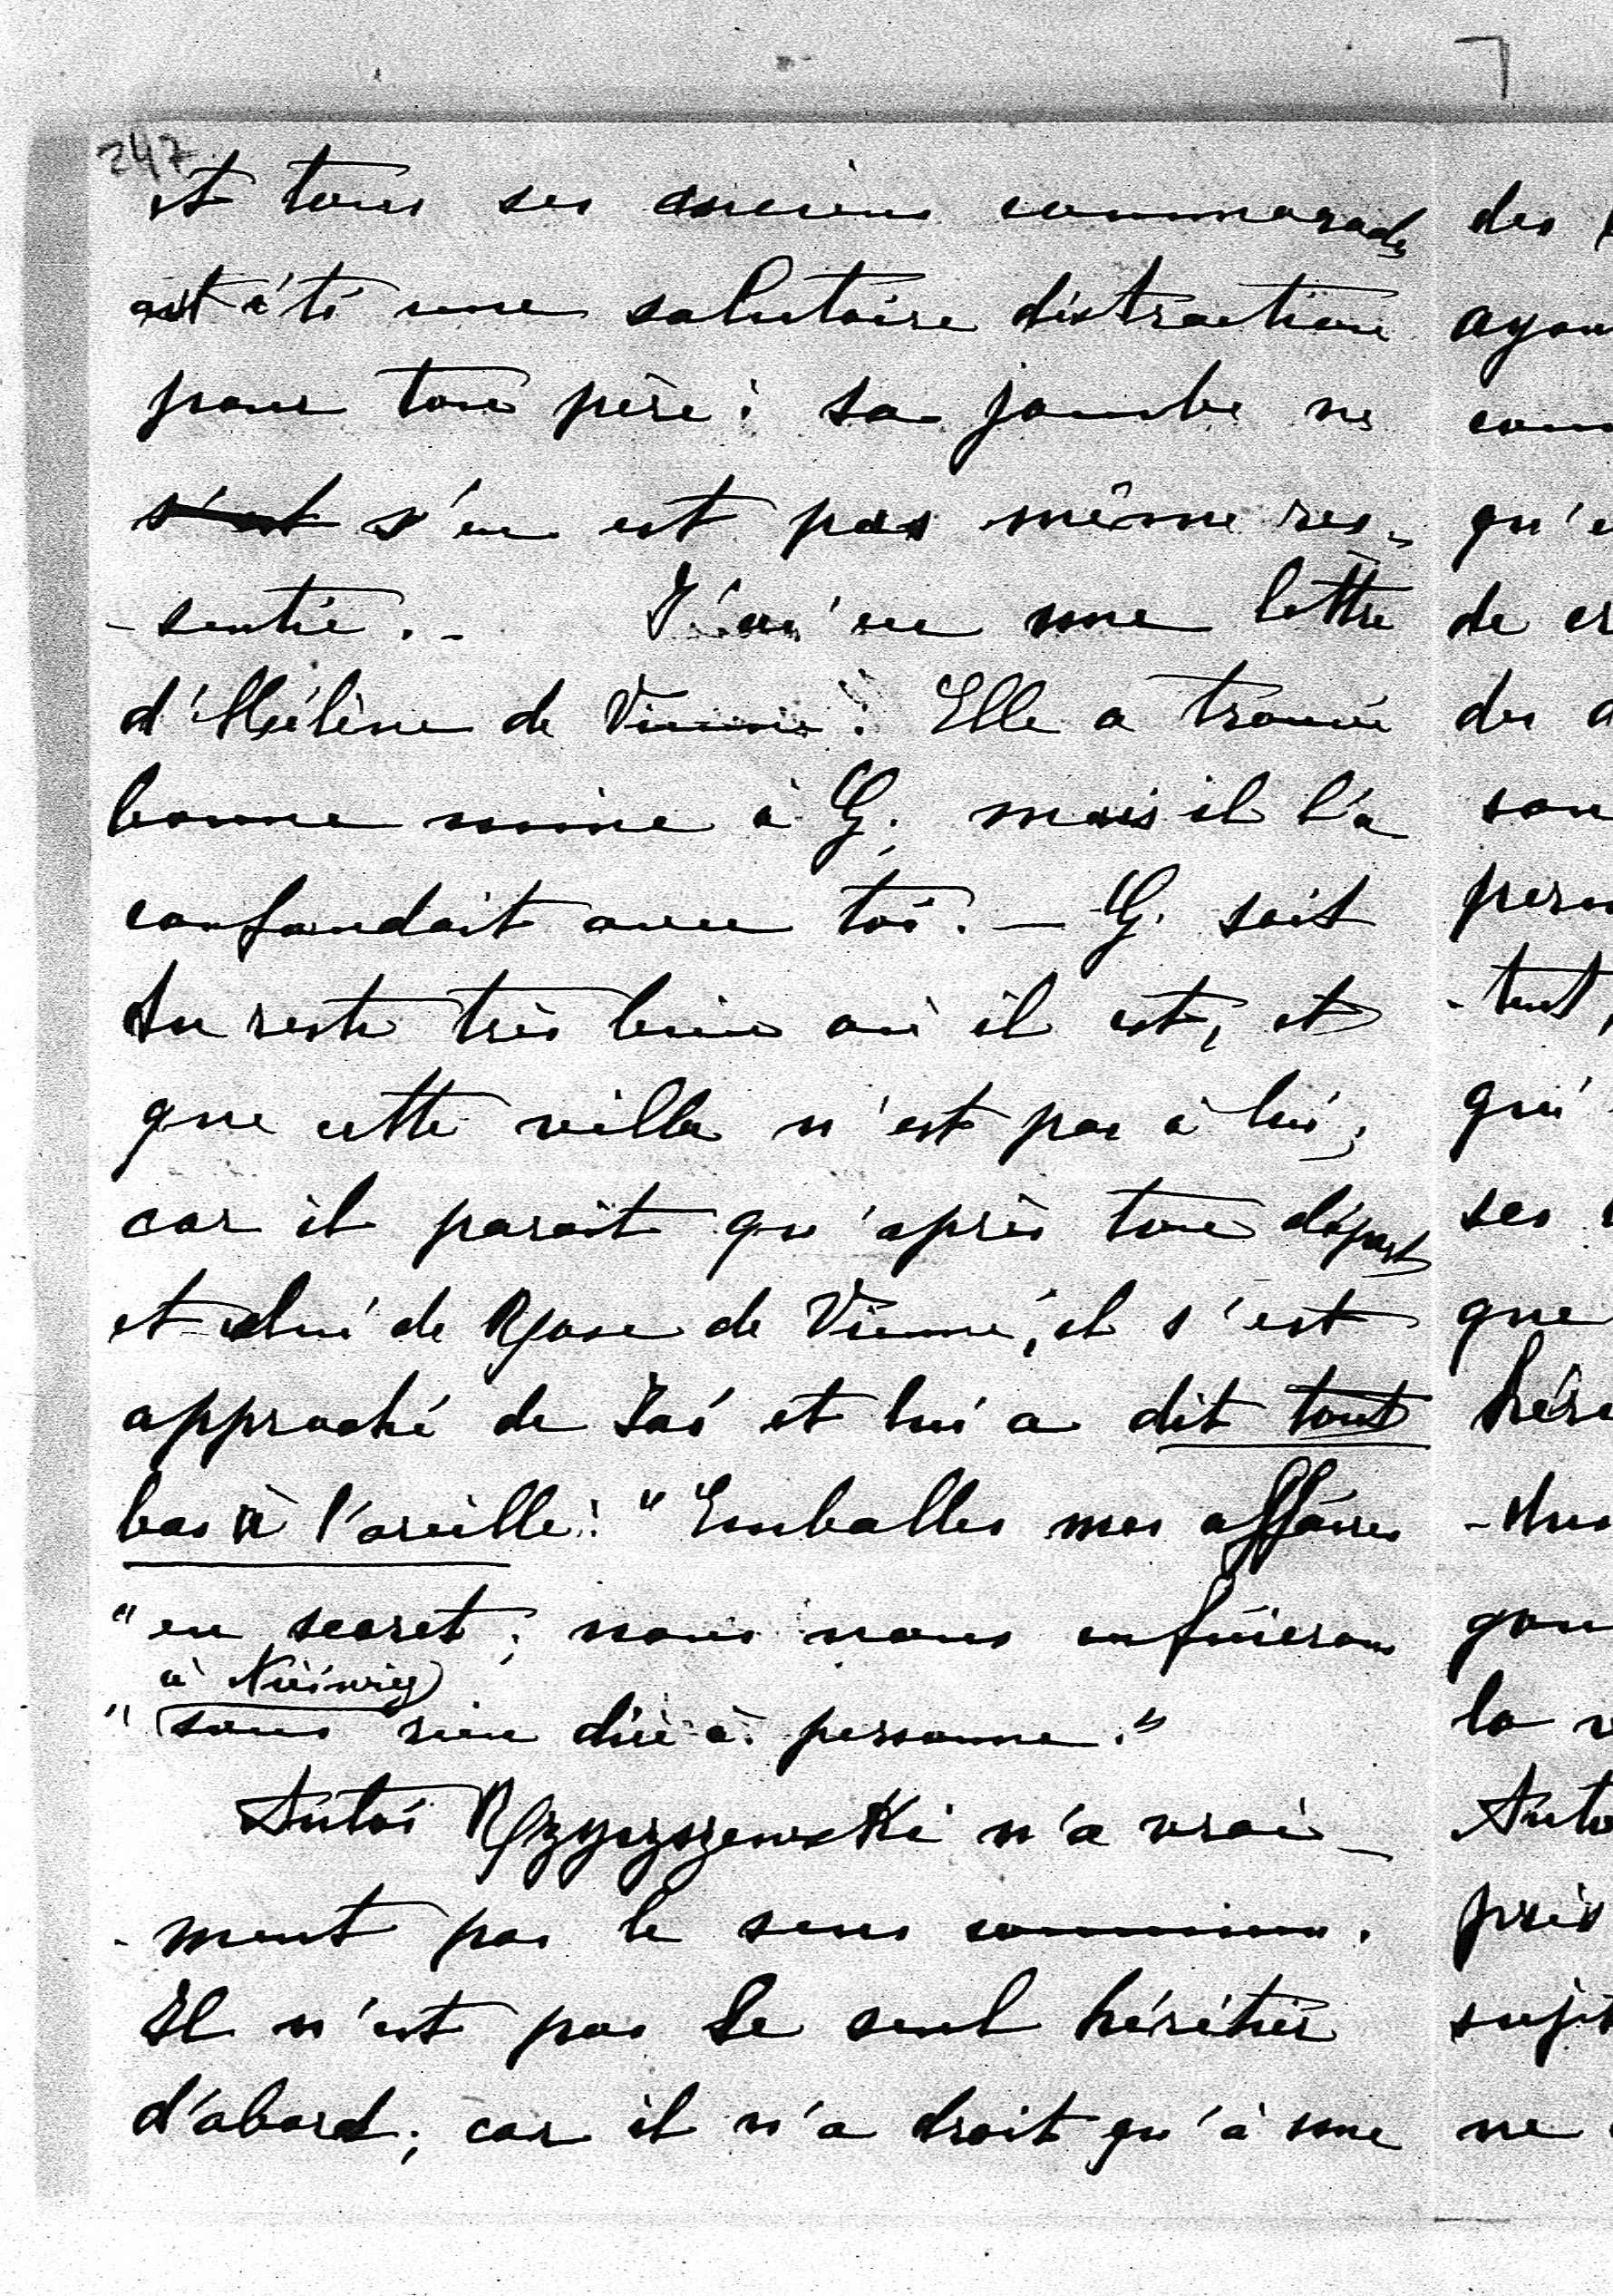 7
247
et tous ses anciens commarades
ont été une salutaire distraction
pour ton père; sa jambe ne
s'est s'en est pas même res-
-sentie. - J'ai eu une lettre
d'Hélène de Vienne. Elle a trouvé
bonne mine à G. mais il l'a
confondait avec toi. — G. sait
du reste très bien où il est, et
que cette villa n'est pas à lui;
car il parait qu'après ton départ
et celui de Rose de Vienne, il s'est
approché de Jaś et lui a dit tout
bas à l'oreille: "Emballes mes affaires
"en secret; nous nous enfuierons
à
"sans rien dire à personne."
Antoś Rzyszczewski n'a vrai-
-ment pas le sens commun.
Il n'est pas le seul héritier
d'abord; car il n'a droit qu'à une
des
ayan
com
qu'e
de cr
des d
son
perm
-tent,
qui
ses
que
héri
-dus
gou
la v
Anto
pris
sujet
ne